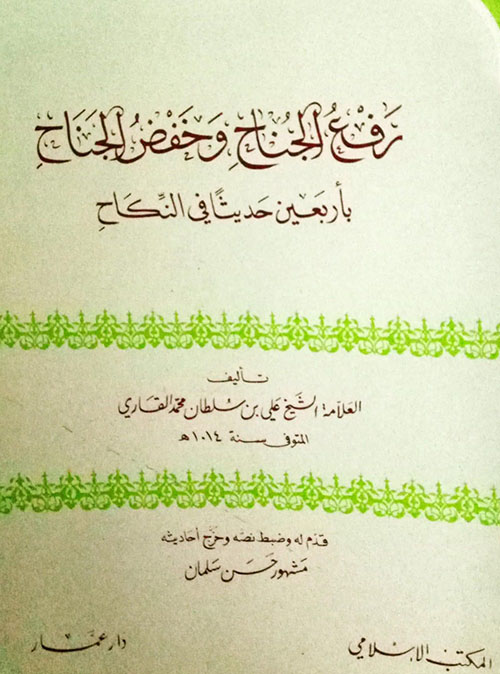 رَفْعُ الجُنَاحِ وَخَفْضُ الجَنَاحِ
بأربَعين حَديثًا في النِّكَاحِ
تأليف
العلّامة الشّيخ علي بن سُلطان محمّد القاري
المتوفى سنة ١٠١٤ هـ
قدّم له وضبط نصّه وخرّج أحاديثه
مَشهور حَسَن سَلمان
المكتب الإسلامي
دار عمَّار